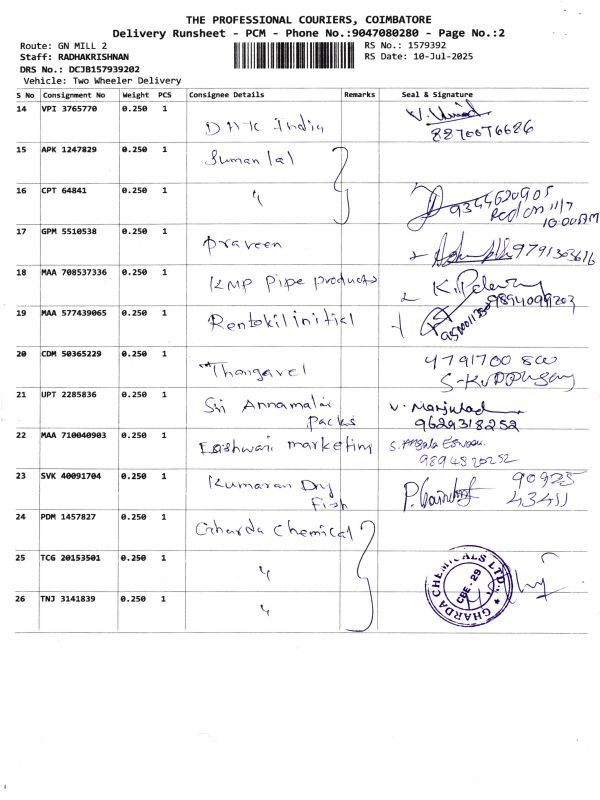 THE PROFESSIONAL COURIERS, COIMBATORE
Delivery Runsheet - PCM - Phone No.:9047080280 - Page No.:2
Route: GN MILL 2
RS No.: 1579392
Staff: RADHAKRISHNAN
RS Date: 10-Jul-2025
DRS No.: DCJB157939202
Vehicle: Two Wheeler Delivery
S No Consignment No Weight PCS Consignee Details Remarks Seal & Signature
14 VPI 3765770 0.250 1 India
8870076626
15 APK 1247829 0.250 1 Sumanlal
16 CPT 64841 0.250 1 "
9344620905
Recd on 11/7
10:00AM
17 GPM 5510538 0.250 1 Praveen 9791303616
18 MAA 708537336 0.250 1 KMP Pipe products
9894099203
19 MAA 577439065 0.250 1 Rentokil initial
20 CDM 50365229 0.250 1 Thangavel
21 UPT 2285836 0.250 1 Sri Annamalai
Packs 9629318252
22 MAA 710040903 0.250 1 Eashwari marketing
9894820252
23 SVK 40091704 0.250 1 Kumaran Dry 90925
Fish 43411
24 PDM 1457827 0.250 1 Gharda Chemical
25 TCG 20153501 0.250 1 "
26 TNJ 3141839 0.250 1 "
GHARDA CHEMICALS LTD.
CBE-29